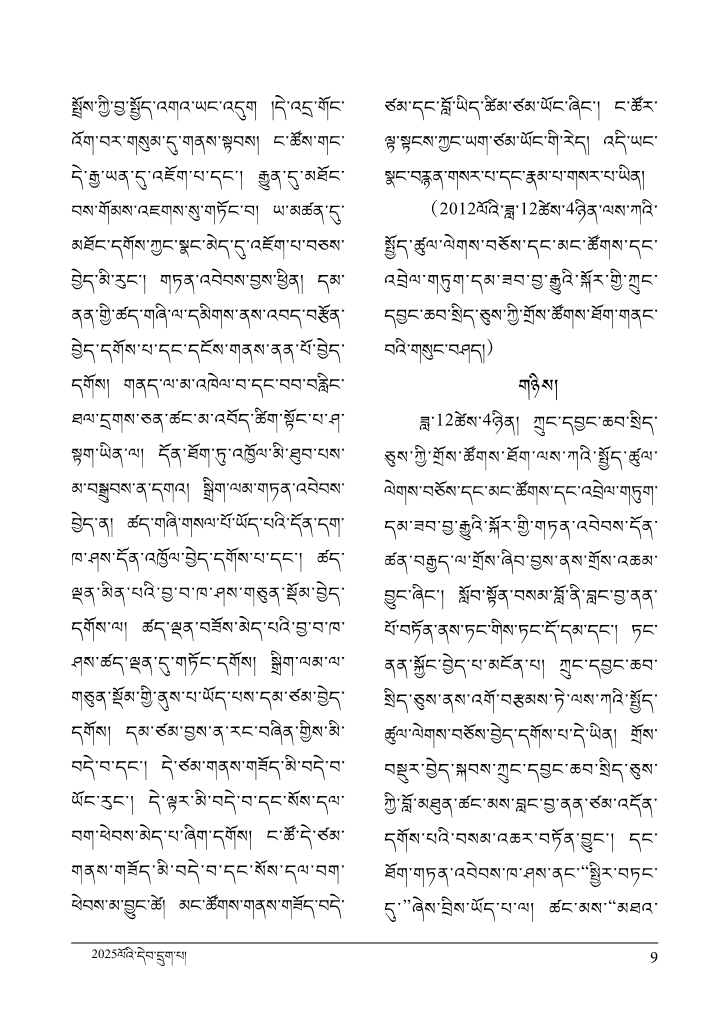 སྤྲོས་ཀྱི་བྱ་སྤྱོད་འགའ་ཡང་འདུག །དེ་འདྲ་གོང་
འོག་བར་གསུམ་དུ་གནས་སྟབས། ང་ཚོས་གང་
དེ་རྒྱ་ཡན་དུ་འཇོག་པ་དང་། རྒྱུན་དུ་མཐོང་
བས་གོམས་འཇགས་སུ་གཏོང་བ། ཡ་མཚན་དུ་
མཐོང་དགོས་ཀྱང་སྣང་མེད་དུ་འཇོག་པ་བཅས་
བྱེད་མི་རུང་། གཏན་འབེབས་བྱས་ཕྱིན། དམ་
ནན་གྱི་ཚད་གཞི་ལ་དམིགས་ནས་འབད་བརྩོན་
བྱེད་དགོས་པ་དང་དངོས་གནས་ནན་པོ་བྱེད་
དགོས། གནད་ལ་མ་འཁེལ་བ་དང་བབ་བརླིང་
ཐལ་དྲགས་ཅན་ཚང་མ་འབོད་ཚིག་སྟོང་པ་ཤ་
སྟག་ཡིན་ལ། དོན་ཐོག་ཏུ་འཁྱོལ་མི་ཐུབ་པས་
མ་བསྒྲུབས་ན་དགའ། སྒྲིག་ལམ་གཏན་འབེབས་
བྱེད་ན། ཚད་གཞི་གསལ་པོ་ཡོད་པའི་དོན་དག་
ཁ་ཤས་དོན་འཁྱོལ་བྱེད་དགོས་པ་དང་། ཚད་
ལྡན་མིན་པའི་བྱ་བ་ཁ་ཤས་གཅུན་སྡོམ་བྱེད་
དགོས་ལ། ཚད་ལྡན་བཟོས་མེད་པའི་བྱ་བ་ཁ་
ཤས་ཚད་ལྡན་དུ་གཏོང་དགོས། སྒྲིག་ལམ་ལ་
གཅུན་སྡོམ་གྱི་ནུས་པ་ཡོད་པས་དམ་ཙམ་བྱེད་
དགོས། དམ་ཙམ་བྱས་ན་རང་བཞིན་གྱིས་མི་
བདེ་བ་དང་། དེ་ཙམ་གནས་གཟོད་མི་བདེ་བ་
ཡོང་རུང་། དེ་ལྟར་མི་བདེ་བ་དང་སོས་དལ་
བག་ཕེབས་མེད་པ་ཞིག་དགོས། ང་ཚོ་དེ་ཙམ་
གནས་གཟོད་མི་བདེ་བ་དང་སོས་དལ་བག་
ཕེབས་མ་བྱུང་ཚེ། མང་ཚོགས་གནས་གཟོད་བདེ་
ཙམ་དང་བློ་ཡིད་ཚིམ་ཙམ་ཡོང་ཞིང་། ང་ཚོར་
ལྟ་སྟངས་ཀྱང་ཡག་ཙམ་ཡོང་གི་རེད། འདི་ཡང་
སྣང་བརྙན་གསར་པ་དང་རྣམ་པ་གསར་པ་ཡིན།
(2012ལོའི་ཟླ་12ཚེས་4ཉིན་ལས་ཀའི་
སྤྱོད་ཚུལ་ལེགས་བཅོས་དང་མང་ཚོགས་དང་
འབྲེལ་གཏུག་དམ་ཟབ་བྱ་རྒྱུའི་སྐོར་གྱི་ཀྲུང་
དབྱང་ཆབ་སྲིད་ཅུས་ཀྱི་གྲོས་ཚོགས་ཐོག་གནང་
བའི་གསུང་བཤད།)
གཉིས།
ཟླ་12ཚེས་4ཉིན། ཀྲུང་དབྱང་ཆབ་སྲིད་
ཅུས་ཀྱི་གྲོས་ཚོགས་ཐོག་ལས་ཀའི་སྤྱོད་ཚུལ་
ལེགས་བཅོས་དང་མང་ཚོགས་དང་འབྲེལ་གཏུག་
དམ་ཟབ་བྱ་རྒྱུའི་སྐོར་གྱི་གཏན་འབེབས་དོན་
ཚན་བརྒྱད་ལ་གྲོས་ཞིབ་བྱས་ནས་གྲོས་འཆམ་
བྱུང་ཞིང་། སློབ་སྟོན་བསམ་བློ་ནི་བླང་བྱ་ནན་
པོ་བཏོན་ནས་ཏང་གིས་ཏང་དོ་དམ་དང་། ཏང་
ནན་སྐྱོང་བྱེད་པ་མངོན་པ། ཀྲུང་དབྱང་ཆབ་
སྲིད་ཅུས་ནས་འགོ་བརྩམས་ཏེ་ལས་ཀའི་སྤྱོད་
ཚུལ་ལེགས་བཅོས་བྱེད་དགོས་པ་དེ་ཡིན། གྲོས་
བསྡུར་བྱེད་སྐབས་ཀྲུང་དབྱང་ཆབ་སྲིད་ཅུས་
ཀྱི་བློ་མཐུན་ཚང་མས་བླང་བྱ་ནན་ཙམ་འདོན་
དགོས་པའི་བསམ་འཆར་བཏོན་བྱུང་། དང་
ཐོག་གཏན་འབེབས་ཁ་ཤས་ནང་“སྤྱིར་བཏང་
དུ་”ཞེས་བྲིས་ཡོད་པ་ལ། ཚང་མས་“མཐའ་
2025ལོའི་དེབ་དྲུག་པ།
9